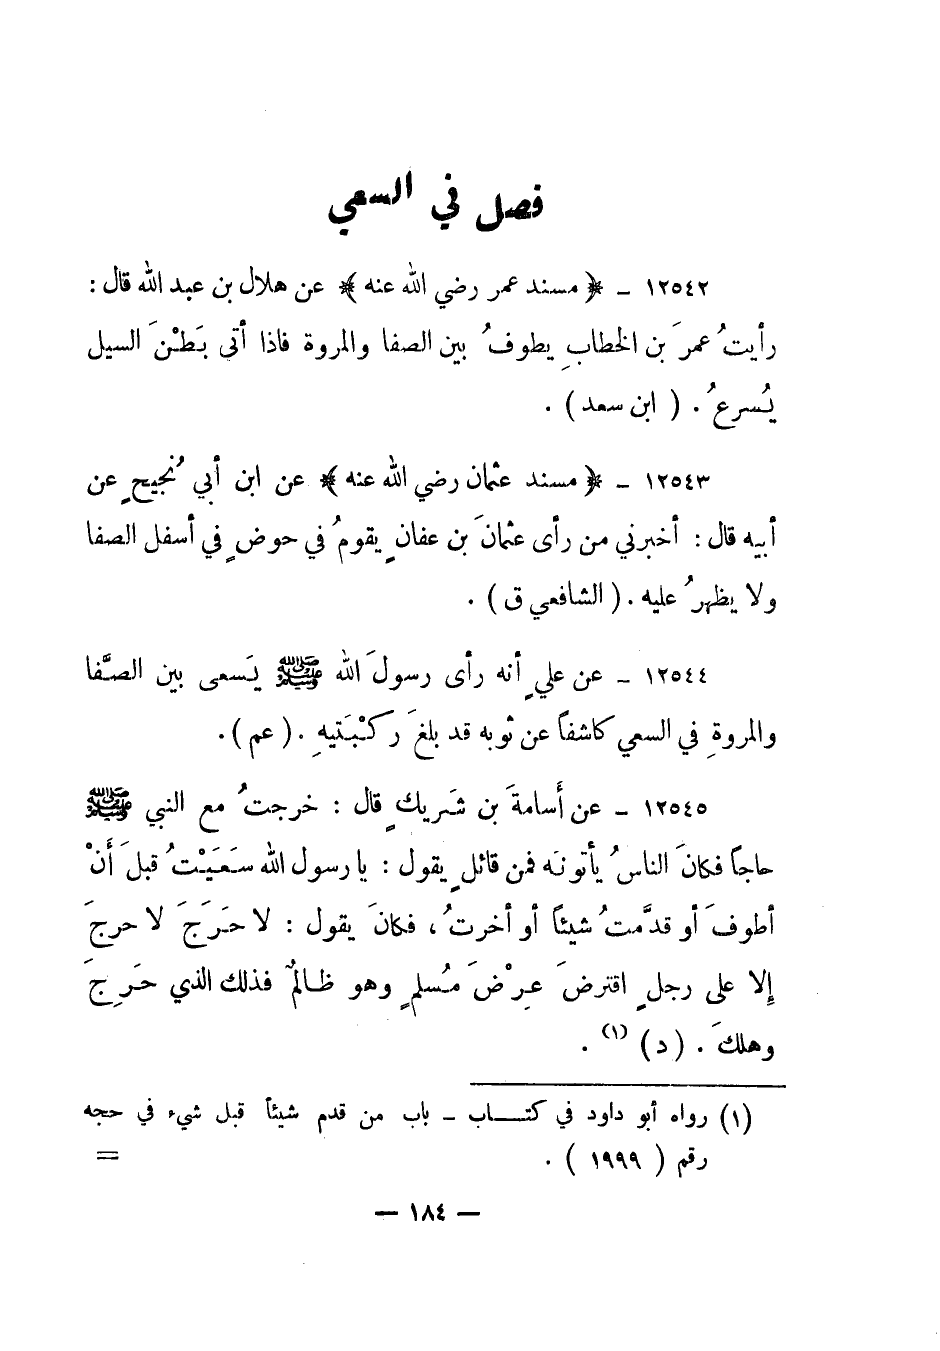 فصل في السعي
١٢٥٤٢ ـ ﴿ مسند عمر رضي الله عنه ﴾ عن هلال بن عبد الله قال :
رأيتُ عمرَ بن الخطابِ يطوفُ بين الصفا والمروة فاذا أتى بَطْنَ السيل
يُسرعُ . ( ابن سعد ) .
١٢٥٤٣ ـ ﴿ مسند عثمان رضي الله عنه ﴾ عن ابن أبي نُجيحٍ عن
أبيه قال : أخبرني من رأى عثمانَ بن عفانٍ يقومُ في حوضٍ في أسفل الصفا
ولا يظهرُ عليه . ( الشافعي ق ) .
١٢٥٤٤ ـ عن عليٍ أنه رأى رسولَ الله ﷺ يَسعى بين الصَّفا
والمروةِ في السعي كاشفاً عن ثوبه قد بلغَ ركْبَتيهِ . ( عم ) .
١٢٥٤٥ ـ عن أُسامةَ بن شَريكٍ قال : خرجتُ مع النبي ﷺ
حاجاً فكانَ الناسُ يأتونَه فمن قائلٍ يقول : يا رسول الله سَعَيْتُ قبلَ أَنْ
أطوفَ أو قدَّمتُ شيئاً أو أخرتُ ، فكانَ يقول : لا حَرَجَ لا حرجَ
إلا على رجلٍ اقترضَ عِرْضَ مُسلمٍ وهو ظالمٌ فذلك الذي حَرِجَ
وهلكَ . ( د ) (١) .
(١) رواه أبو داود في كتـــاب ـ باب من قدم شيئاً قبل شيء في حجه
رقم ( ١٩٩٩ ) . =
— ١٨٤ —